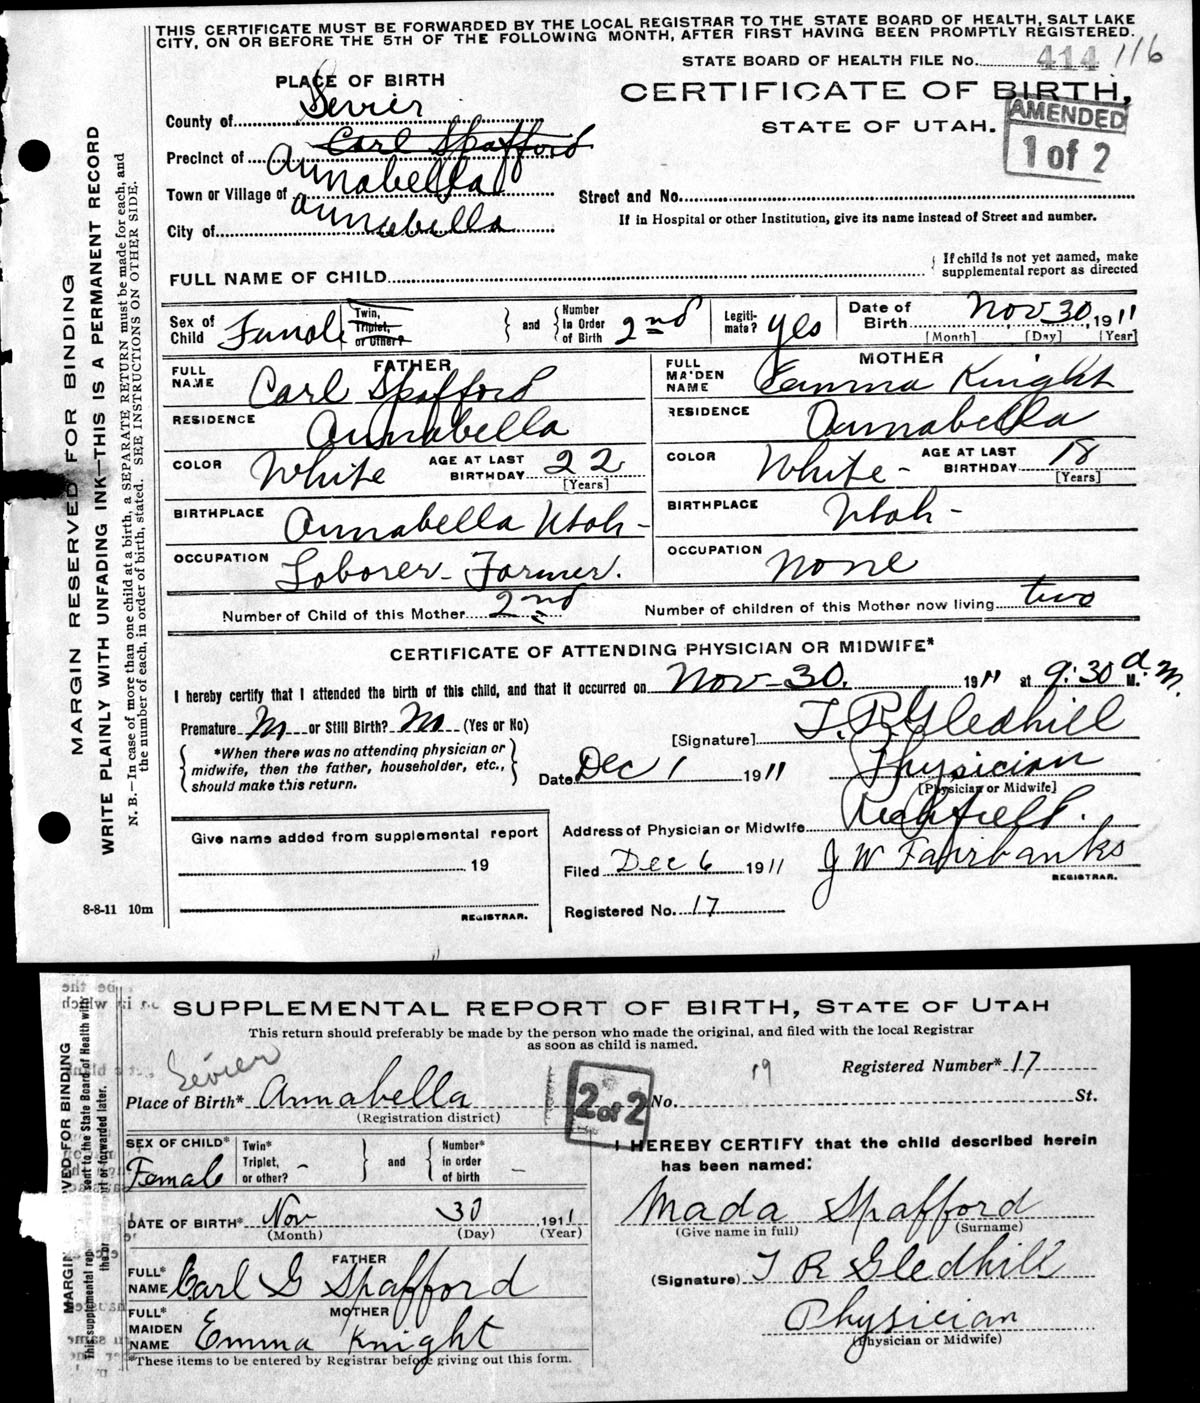 THIS CERTIFICATE MUST BE FORWARDED BY THE LOCAL REGISTRAR TO THE STATE BOARD OF HEALTH, SALT LAKE
CITY, ON OR BEFORE THE 5TH OF THE FOLLOWING MONTH, AFTER FIRST HAVING BEEN PROMPTLY REGISTERED.
STATE BOARD OF HEALTH FILE No. 414 116
PLACE OF BIRTH
CERTIFICATE OF BIRTH,
STATE OF UTAH.
AMENDED
1 of 2
County of Sevier
Carl Spafford
Precinct of Annabella
Town or Village of Annabella
City of
Street and No.
If in Hospital or other Institution, give its name instead of Street and number.
FULL NAME OF CHILD
If child is not yet named, make
supplemental report as directed
Sex of Child Female
Twin, Triplet, or Other?
and
Number In Order of Birth 2nd
Legiti-mate? yes
Date of Birth Nov 30, 1911
[Month] [Day] [Year]
FATHER
FULL NAME Carl Spafford
RESIDENCE Annabella
COLOR White AGE AT LAST BIRTHDAY 22
[Years]
BIRTHPLACE Annabella Utah-
OCCUPATION Laborer-Farmer.
MOTHER
FULL MAIDEN NAME Emma Knight
RESIDENCE Annabella
COLOR White- AGE AT LAST BIRTHDAY 18
[Years]
BIRTHPLACE Utah-
OCCUPATION None
Number of Child of this Mother 2nd Number of children of this Mother now living two
CERTIFICATE OF ATTENDING PHYSICIAN OR MIDWIFE*
I hereby certify that I attended the birth of this child, and that it occurred on Nov-30. 1911 at 9:30 a.M.
Premature No or Still Birth? No (Yes or No)
*When there was no attending physician or
midwife, then the father, householder, etc.,
should make this return.
[Signature] T. R. Gledhill
Date Dec 1 1911 Physician
[Physician or Midwife]
Address of Physician or Midwife Richfield.
Filed Dec 6 1911 J W Fairbanks
REGISTRAR.
Registered No. 17
Give name added from supplemental report
19
REGISTRAR.
8-8-11 10m
MARGIN RESERVED FOR BINDING
WRITE PLAINLY WITH UNFADING INK—THIS IS A PERMANENT RECORD
N. B.—In case of more than one child at a birth, a SEPARATE RETURN must be made for each, and
the number of each, in order of birth, stated. SEE INSTRUCTIONS ON OTHER SIDE.
SUPPLEMENTAL REPORT OF BIRTH, STATE OF UTAH
This return should preferably be made by the person who made the original, and filed with the local Registrar
as soon as child is named.
Sevier
19
Registered Number* 17
Place of Birth* Annabella
(Registration district)
2 of 2
No. St.
SEX OF CHILD* Female
Twin* Triplet, or other? -
and
Number* in order of birth -
DATE OF BIRTH* Nov 30 1911
(Month) (Day) (Year)
FATHER
FULL* NAME Carl G Spafford
MOTHER
FULL* MAIDEN NAME Emma Knight
*These items to be entered by Registrar before giving out this form.
I HEREBY CERTIFY that the child described herein
has been named:
Mada Spafford
(Give name in full) (Surname)
(Signature) T R Gledhill
Physician
(Physician or Midwife)